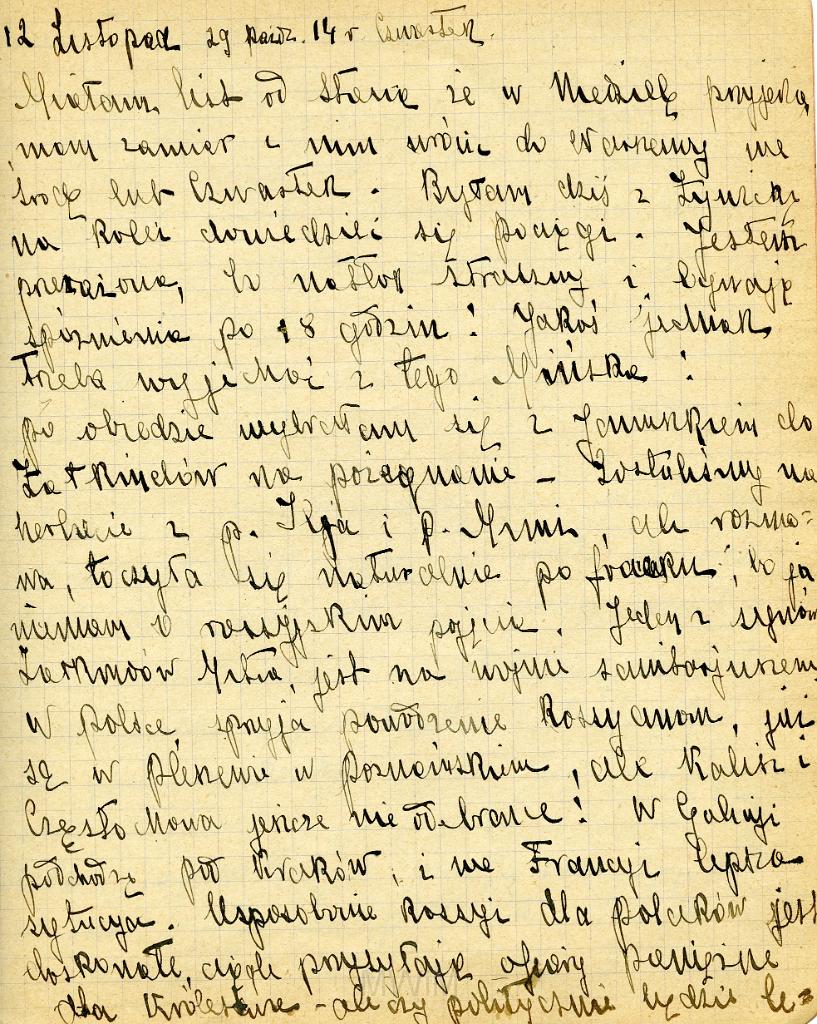 12 Listopad 29 paźdz. 14 r. Czwartek.
Miałam list od Stasia że w Niedzielę przyjeżdża,
mam zamiar z nim wrócić do Warszawy we
środę lub Czwartek. Byłam dziś z
na Kolei dowiedzieć się pociągi. Jestem
przerażona, bo natłok straszny i bywają
spóźnienia po 18 godzin! Jakoś jednak
trzeba wyjechać z tego Mińska!
po obiedzie wybrałam się z Januszkiem do
na pożegnanie – Zostaliśmy na
herbacie z p. Ilja i p. Mimi, ale rozmo=
wa, toczyła się naturalnie po franku, bo ja
niemam o rossyjskim pojęcia. Jeden z synów
Mitia, jest na wojnie sanitarjuszem
W Polsce, sprzyja powodzenie Rossyanom, już
są w Pleszewie w poznańskiem, ale Kalisz i
Częstochowa jeszcze nie odebrane! W Galicji
podchodzą pod Kraków, i we Francyi lepsza
sytucya. Usposobienie Rossyi dla polaków jest
doskonałe, ciągle przysyłają ofiary pieniężne
dla Królestwa – ale czy politycznie będzie le=